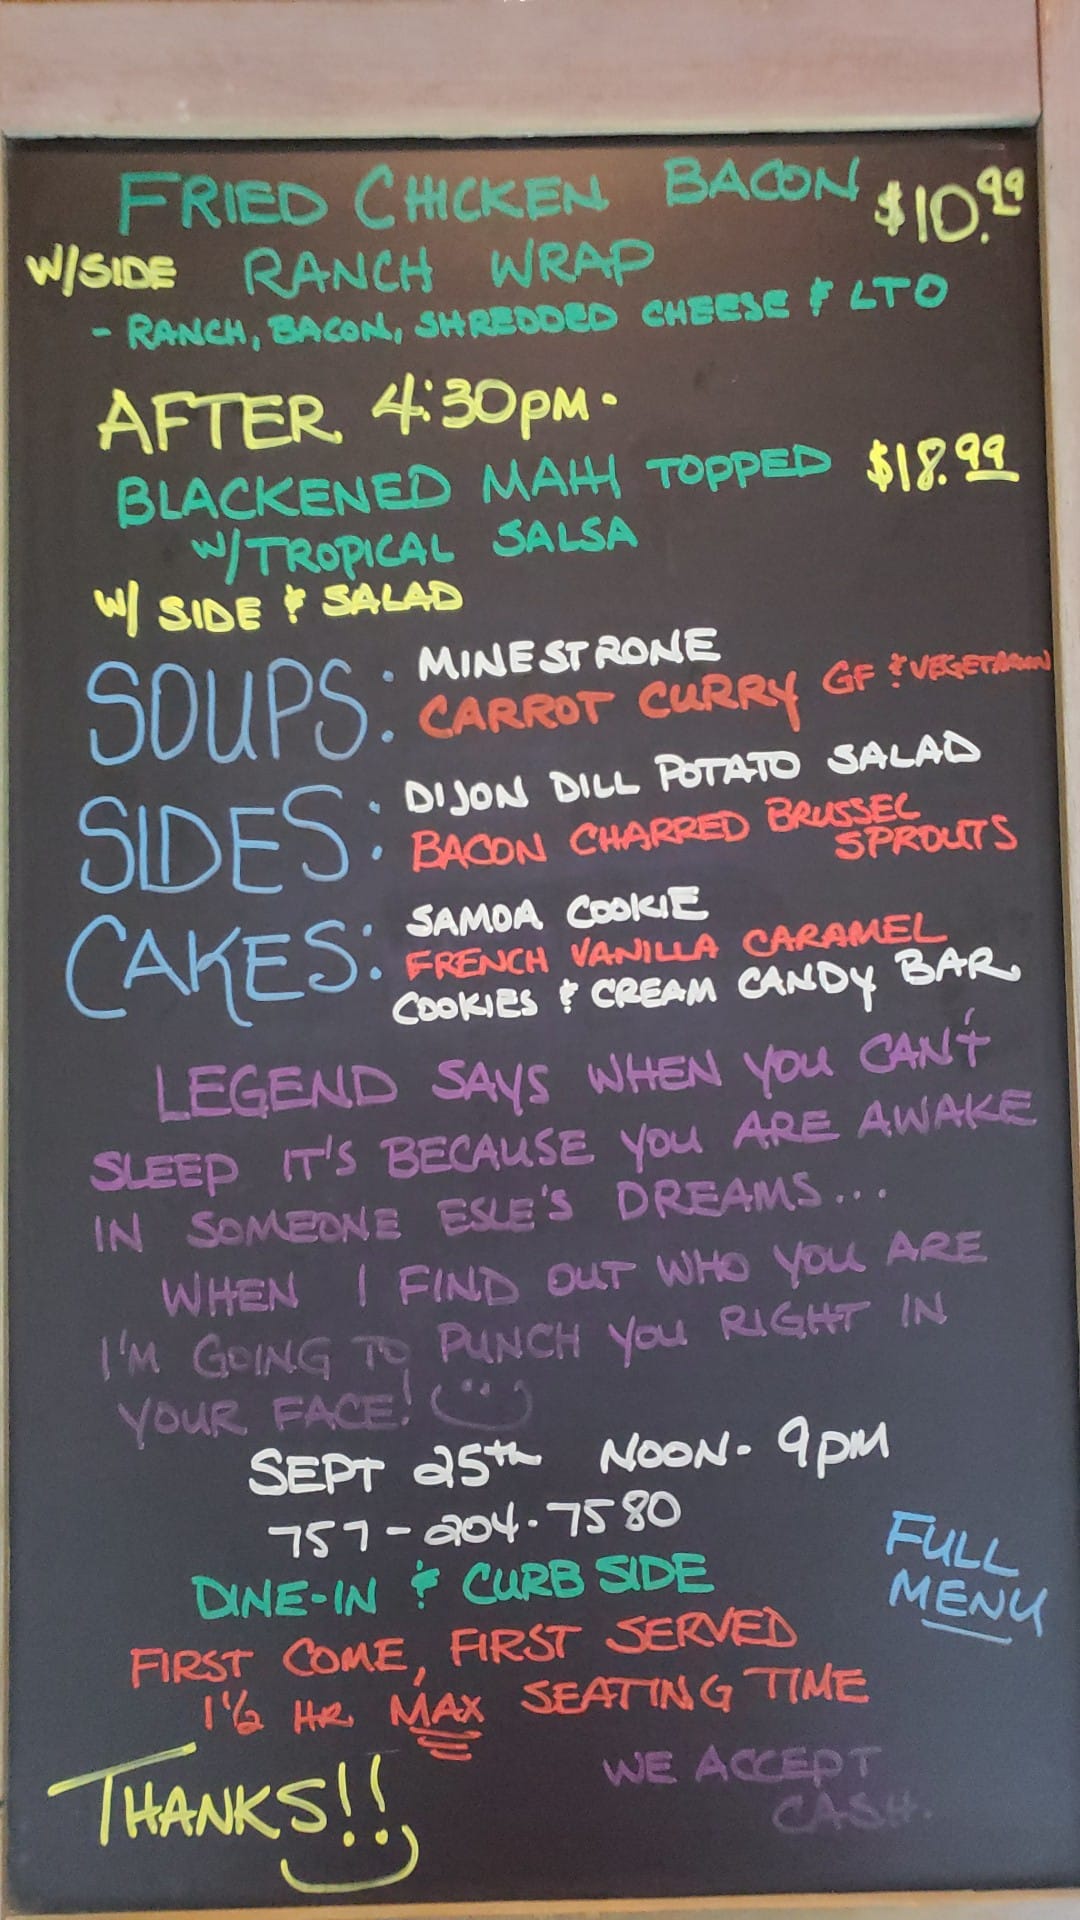 FRIED CHICKEN BACON $10.99
W/SIDE RANCH WRAP
- RANCH, BACON, SHREDDED CHEESE & LTO
AFTER 4:30PM.
BLACKENED MAHI TOPPED $18.99
W/TROPICAL SALSA
W/ SIDE & SALAD
SOUPS: MINESTRONE
CARROT CURRY GF & VEGETARIAN
SIDES: DIJON DILL POTATO SALAD
BACON CHARRED BRUSSEL
SPROUTS
CAKES: SAMOA COOKIE
FRENCH VANILLA CARAMEL
COOKIES & CREAM CANDY BAR
LEGEND SAYS WHEN YOU CAN'T
SLEEP IT'S BECAUSE YOU ARE AWAKE
IN SOMEONE ESLE'S DREAMS...
WHEN I FIND OUT WHO YOU ARE
I'M GOING TO PUNCH YOU RIGHT IN
YOUR FACE!
SEPT 25th NOON- 9PM
757-204-7580
DINE-IN & CURBSIDE
FULL
MENU
FIRST COME, FIRST SERVED
1 1/2 HR MAX SEATING TIME
WE ACCEPT
CASH.
THANKS!!